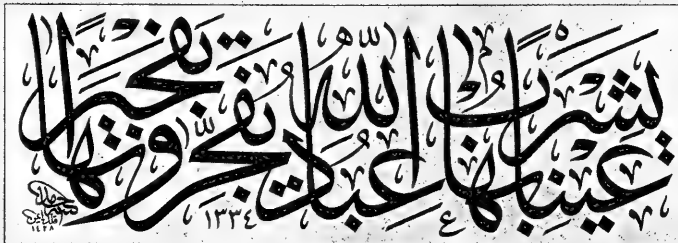 عينا يشرب بها عباد الله يفجرونها تفجيرا
١٣٣٤
١٤٢٨